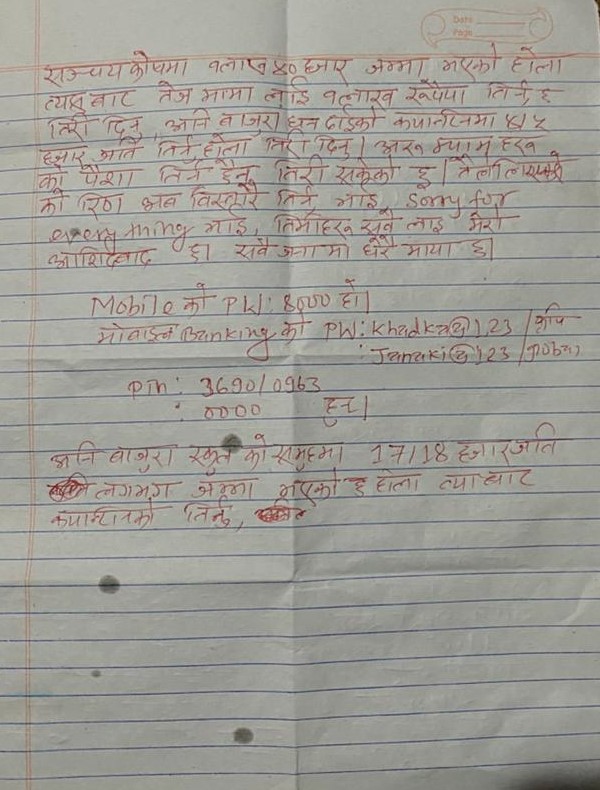 Date
Page
सञ्चय कोषमा १लाख ४० हजार जम्मा भएको होला
त्यस बाट तेज मामा लाई १लाख रूपैया तिर्नु छ
तिरी दिनु, अनि बाजुरा धन दाइको कपानटिनमा ४/५
हजार जति तिर्नु होला तिरी दिनु। अरु म्याम हरु
को पैशा तिर्नु छैन, तिरी सकेको छु।
को रिण अब विस्तारै तिर्नु भाइ, Sorry for
every thing भाइ, तिमीहरु सवै लाई मेरो
आशिर्वाद छ। सवै जना मा धेरै माया छ।
Mobile को PW: 8000 हो।
मोवाइल Banking को PW: Khadka@123 / कृषि
: Janaki@123 /
Pin: 3690/0963
: 0000 हुन्।
अनि बाजुरा स्कुल को समुहमा 17/18 हजार जति
लगभग जम्मा भएको होला त्या बाट
तिर्नु,